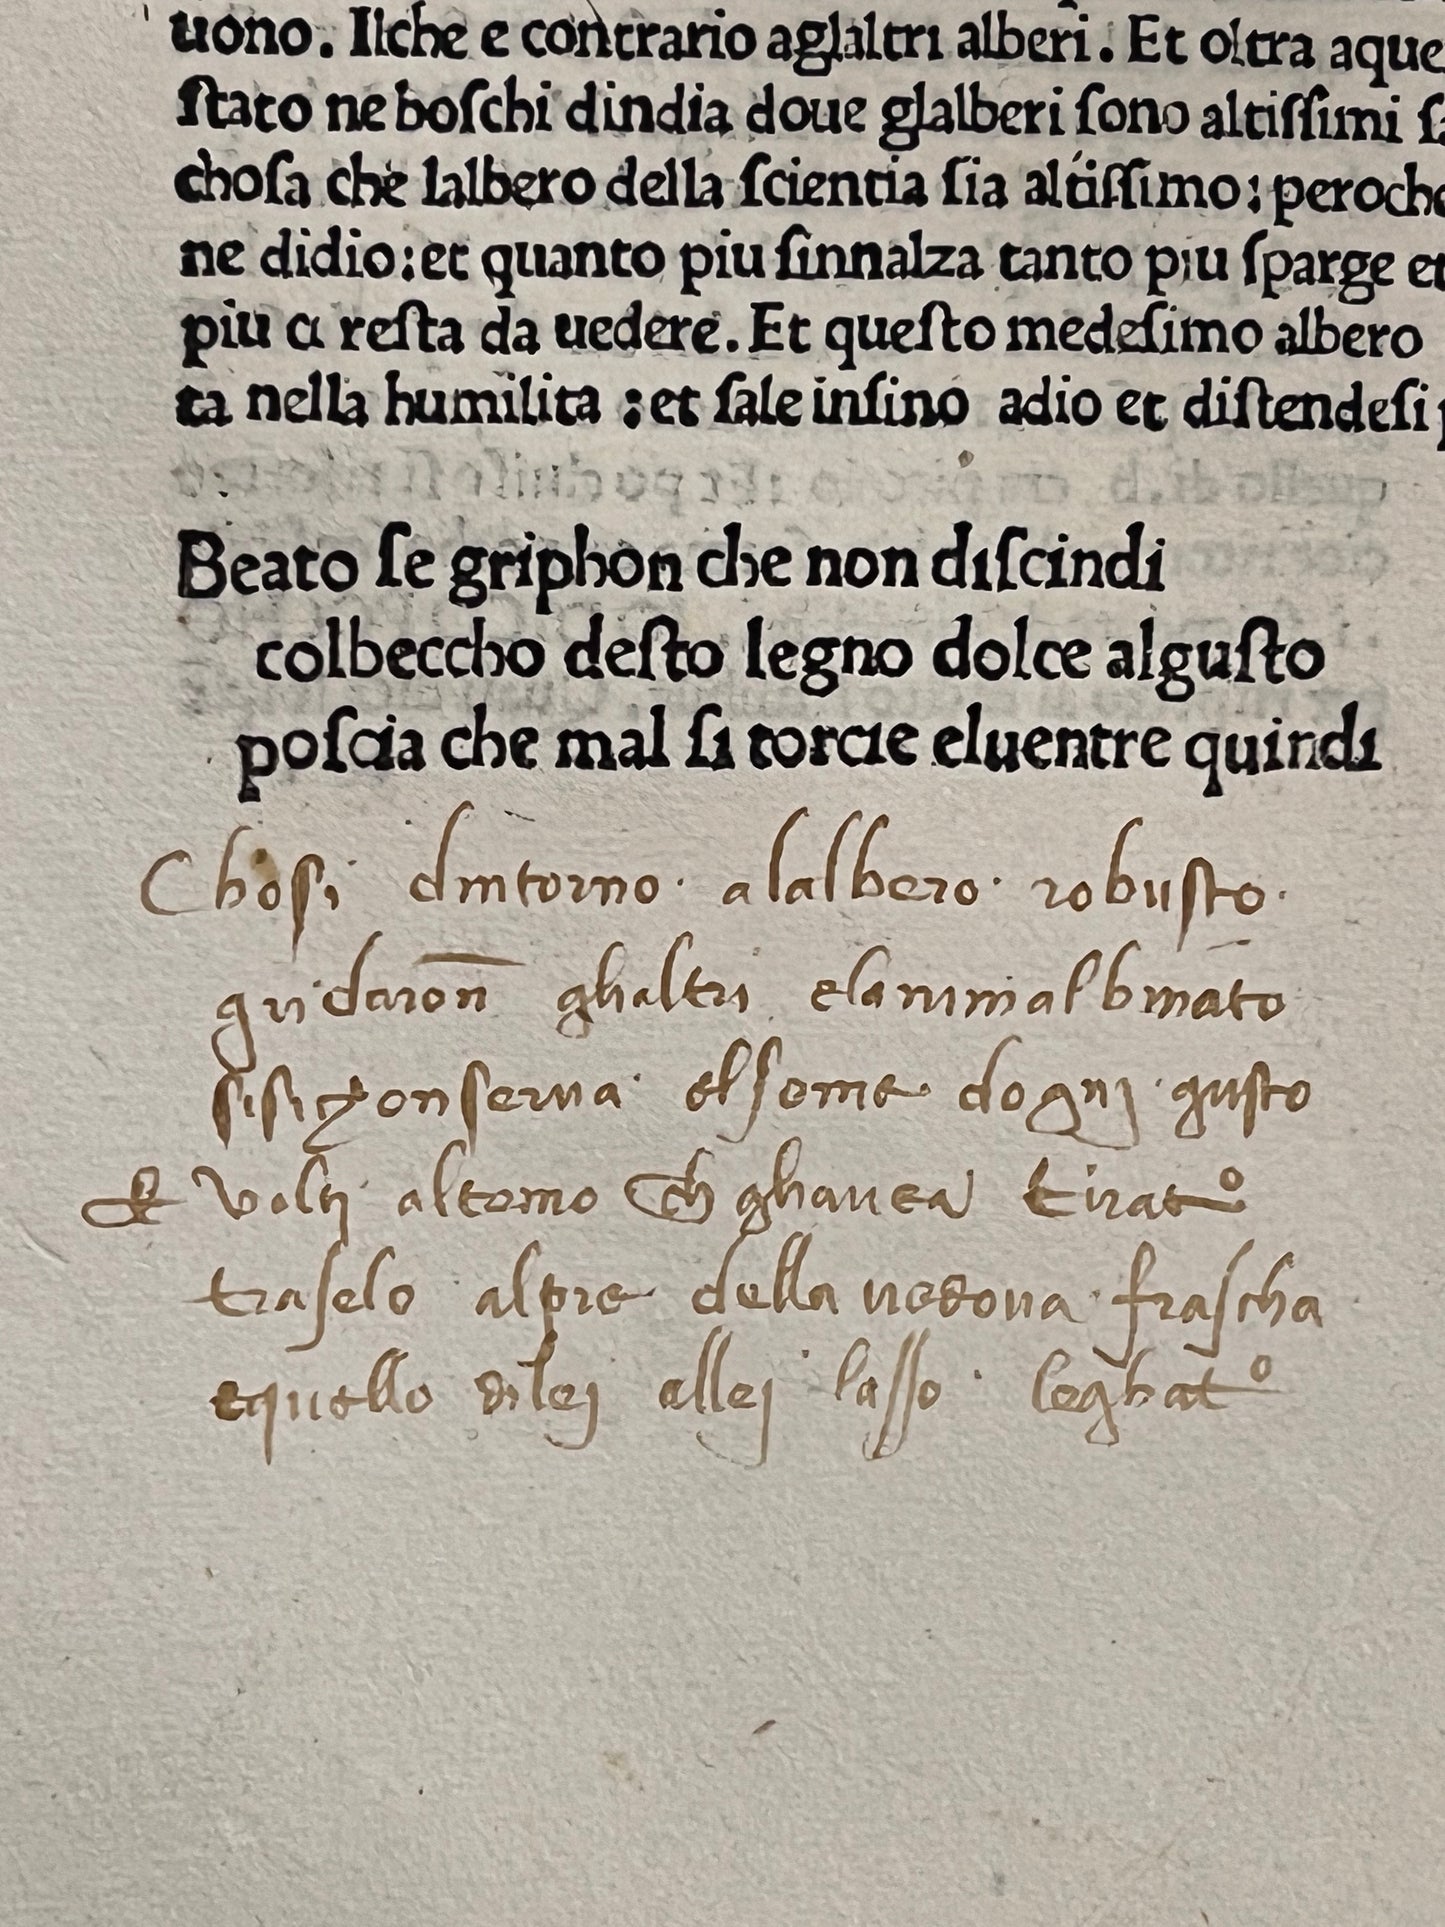 uono. Ilche e contrario aglaltri alberi. Et oltra aque
ſtato ne boſchi dindia doue glalberi ſono altiſſimi ſa
choſa che lalbero della ſcientia ſia altiſſimo: peroche
ne didio: et quanto piu ſinnalza tanto piu ſparge et
piu ci reſta da uedere. Et queſto medeſimo albero
ta nella humilita : et ſale inſino adio et diſtendeſi
Beato ſe griphon che non diſcindi
colbeccho deſto legno dolce alguſto
poſcia che mal ſi torcie eluentre quindi
Choſi dintorno · alalbero · robuſto ·
gridaron̄ ghaltri elanimal binato
ſiſi conſerua · elſeme dognj · guſto
& voltj altemo ch ghauea tirato
traſelo alpie della uedoua fraſcha
equello dilej allej laſſo · leghato